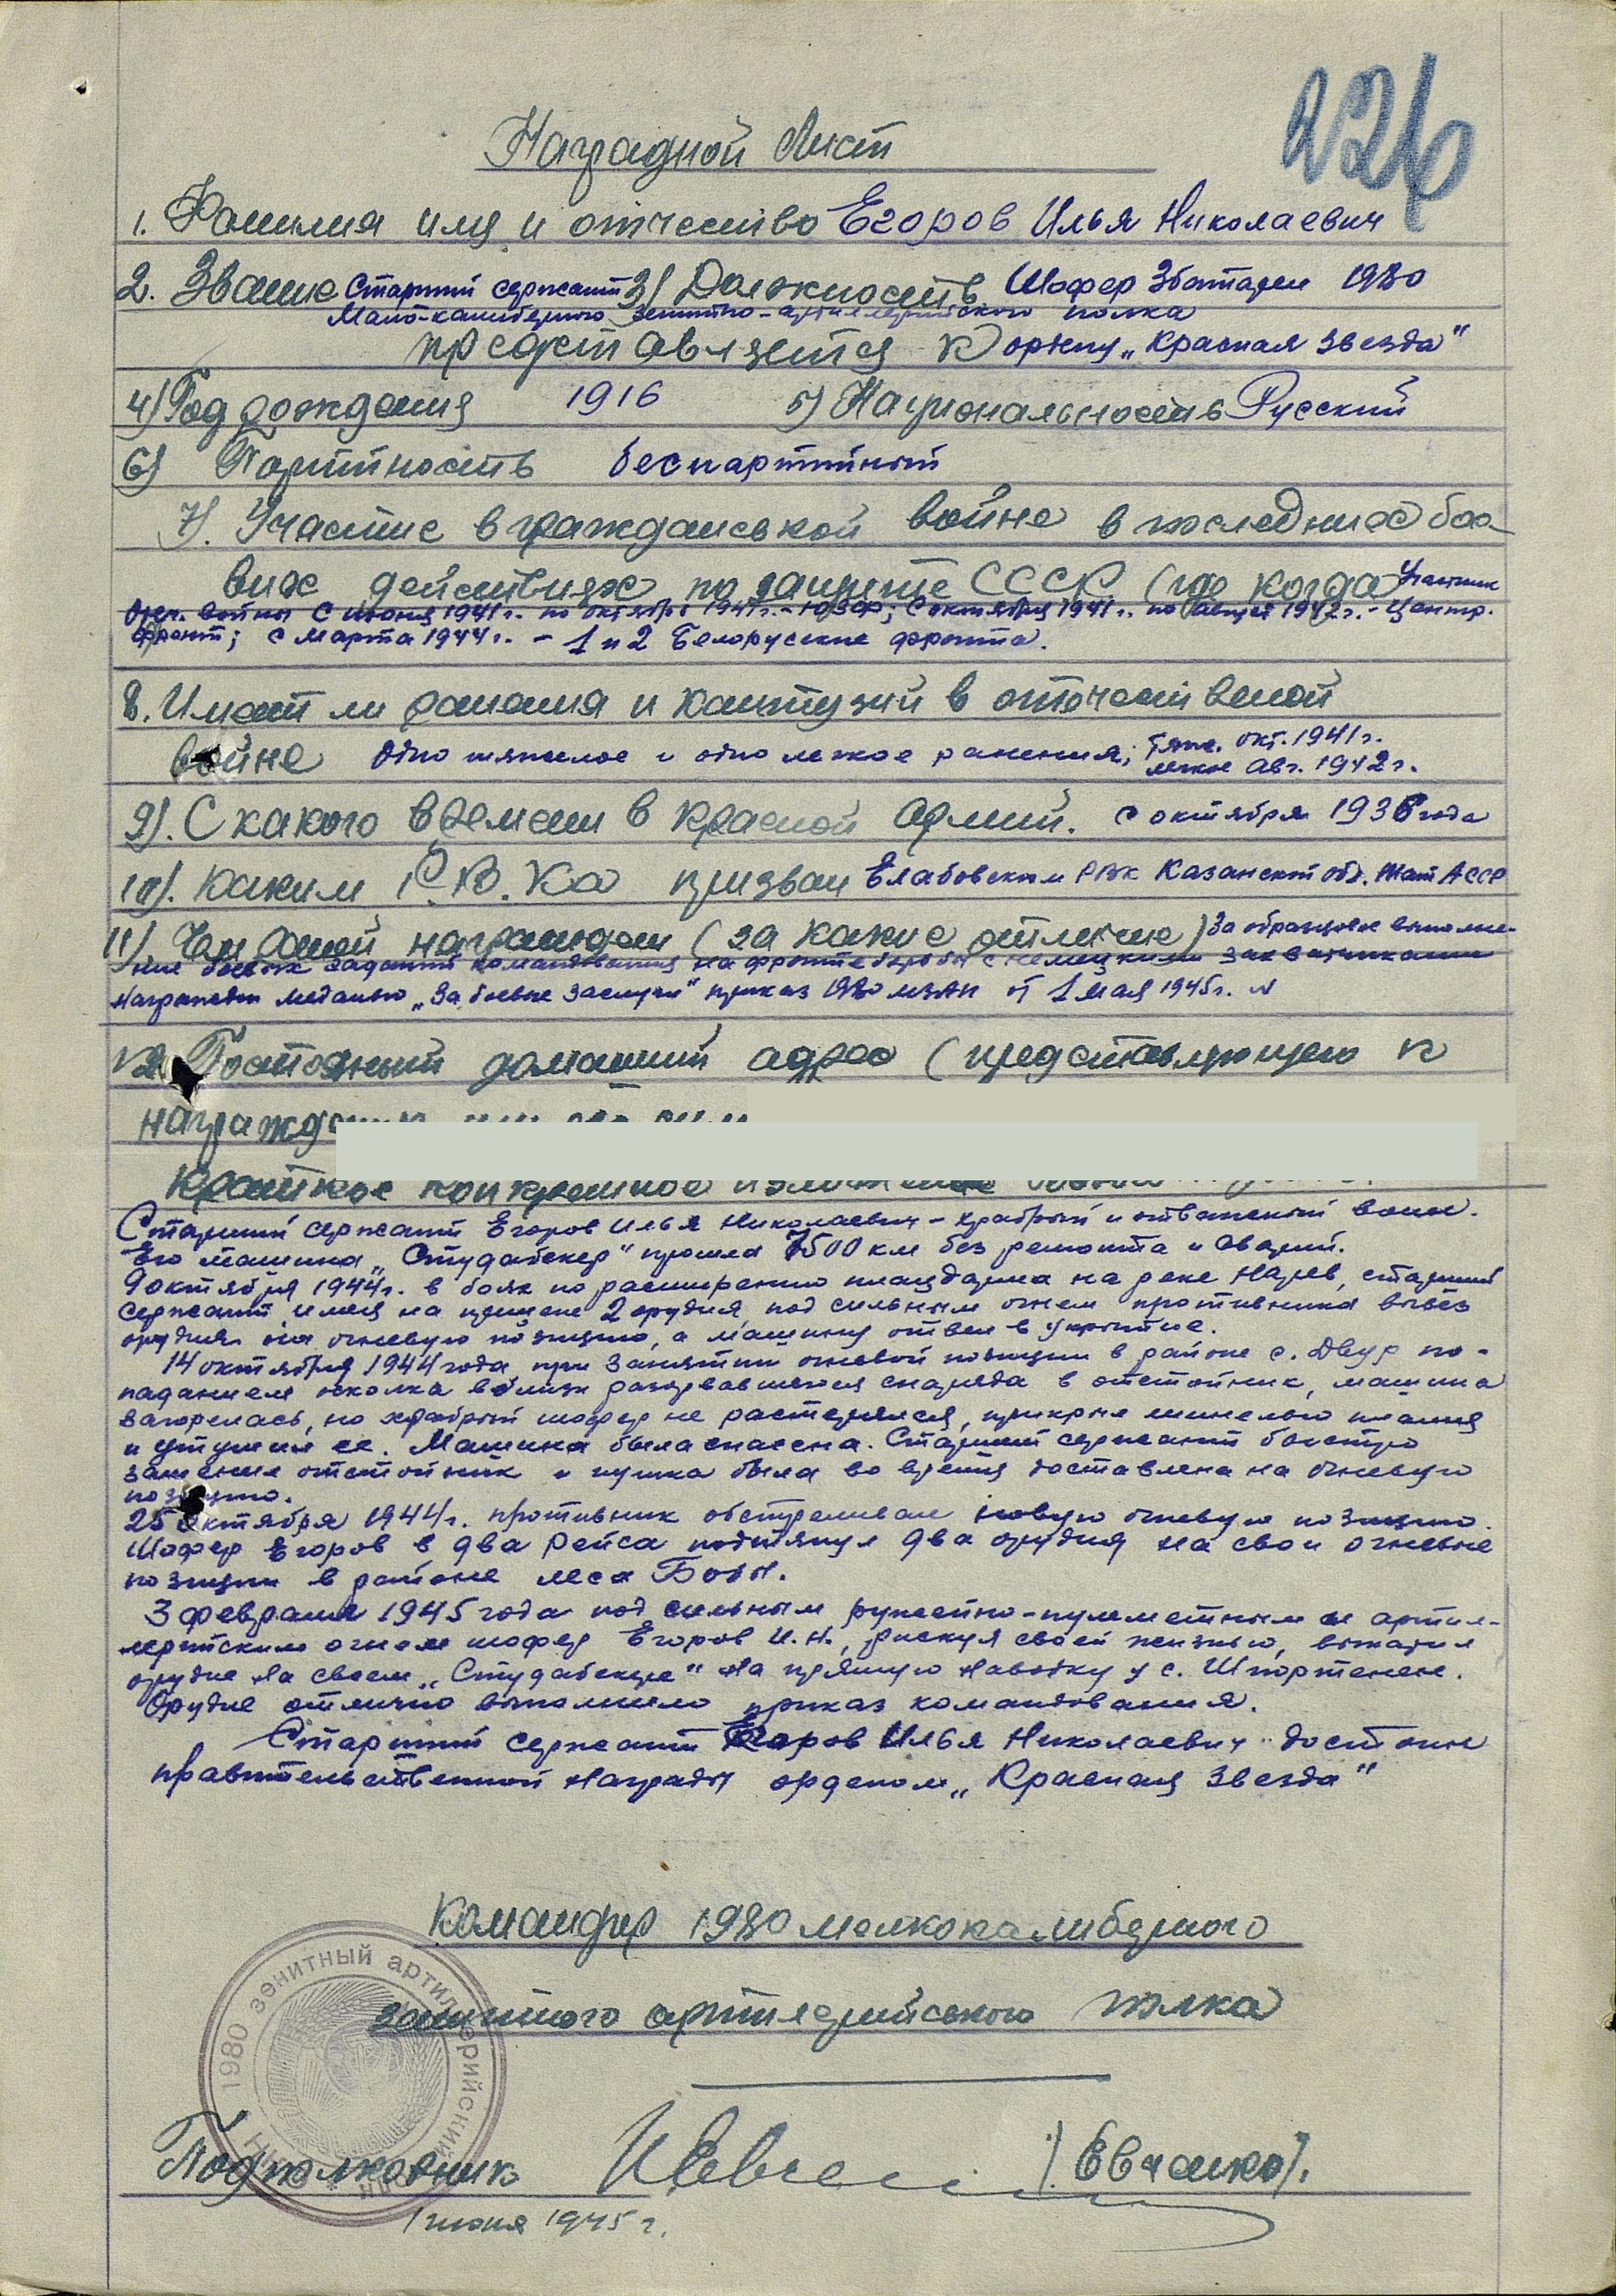 226
Наградной лист
1. Фамилия имя и отчество Егоров Илья Николаевич
2. Звание Старший сержант 3) Должность Шофер 3 батареи 1980
Мало-калиберного зенитно-артиллерийского полка
представляется к ордену „Красная звезда"
4) Год рождения 1916 5) Национальность Русский
6) Партийность беспартийный
7). Участие в гражданской войне в последних бое-
вых действиях по защите СССР (где когда Участник
Отеч. войны с июня 1941 г. по октябрь 1941 г. - ЮЗФ; с октября 1941 г. по август 1942 г. - Центр.
фронт; с марта 1944 г. - 1 и 2 Белорусские фронта.
8. Имеет ли ранения и контузий в отечественой
войне Одно тяжелое и одно легкое ранения; тяж. окт. 1941 г.
легкое авг. 1942 г.
9). С какого времени в красной армии. с октября 1936 года
10). Каким Р.В.Ка призван Елабовским РВК Казанской обл. Тат АССР
11). Чем раней награжден (за какие отличие) За образцовое выполне-
ние боевых заданий командования на фронте борьбы с немецкими захватчиками
Награжден медалью „За боевые заслуги" приказ 1980 мзАП от 1 мая 1945 г. №
12. Постоянный домашний адрес (представляющего к
награждению
Краткое конкретное изложение
Старший сержант Егоров Илья Николаевич - храбрый и отважный воин.
Его машина „Студабекер" прошла 7500 км без ремонта и аварий.
9 октября 1944 г. в боях по расширению плацдарма на реке Нарев, старший
сержант, имея на прицепе 2 орудия, под сильным огнем противника вывез
орудия на огневую позицию, а машину отвел в укрытие.
14 октября 1944 года при занятии огневой позиции в районе с. Двур по-
паданием осколка вблизи разорвавшегося снаряда в отстойник, машина
загорелась, но храбрый шофер не растерялся, прикрыл шинелью пламя
и утушил ее. Машина была спасена. Старший сержант быстро
заменил отстойник и пушка была во время доставлена на огневую
позицию.
25 октября 1944 г. противник обстреливал новую огневую позицию.
Шофер Егоров в два рейса подтянул два орудия на свои огневые
позиции в районе леса Бобы.
3 февраля 1945 года под сильным ружейно-пулеметным и артил-
лерийским огнем шофер Егоров И.Н., рискуя своей жизнью, выкатил
орудие на своем „Студабекере" на прямую наводку у с. Шпортенен.
Орудие отлично выполнило приказ командования.
Старший сержант Егоров Илья Николаевич достоин
правительственной награды орденом „Красная Звезда"
Командир 1980 мелкокалиберного
зенитного артилерийского полка
1980 зенитный артиллерийский
Подполковник /Евченко/.
1 июня 1945 г.